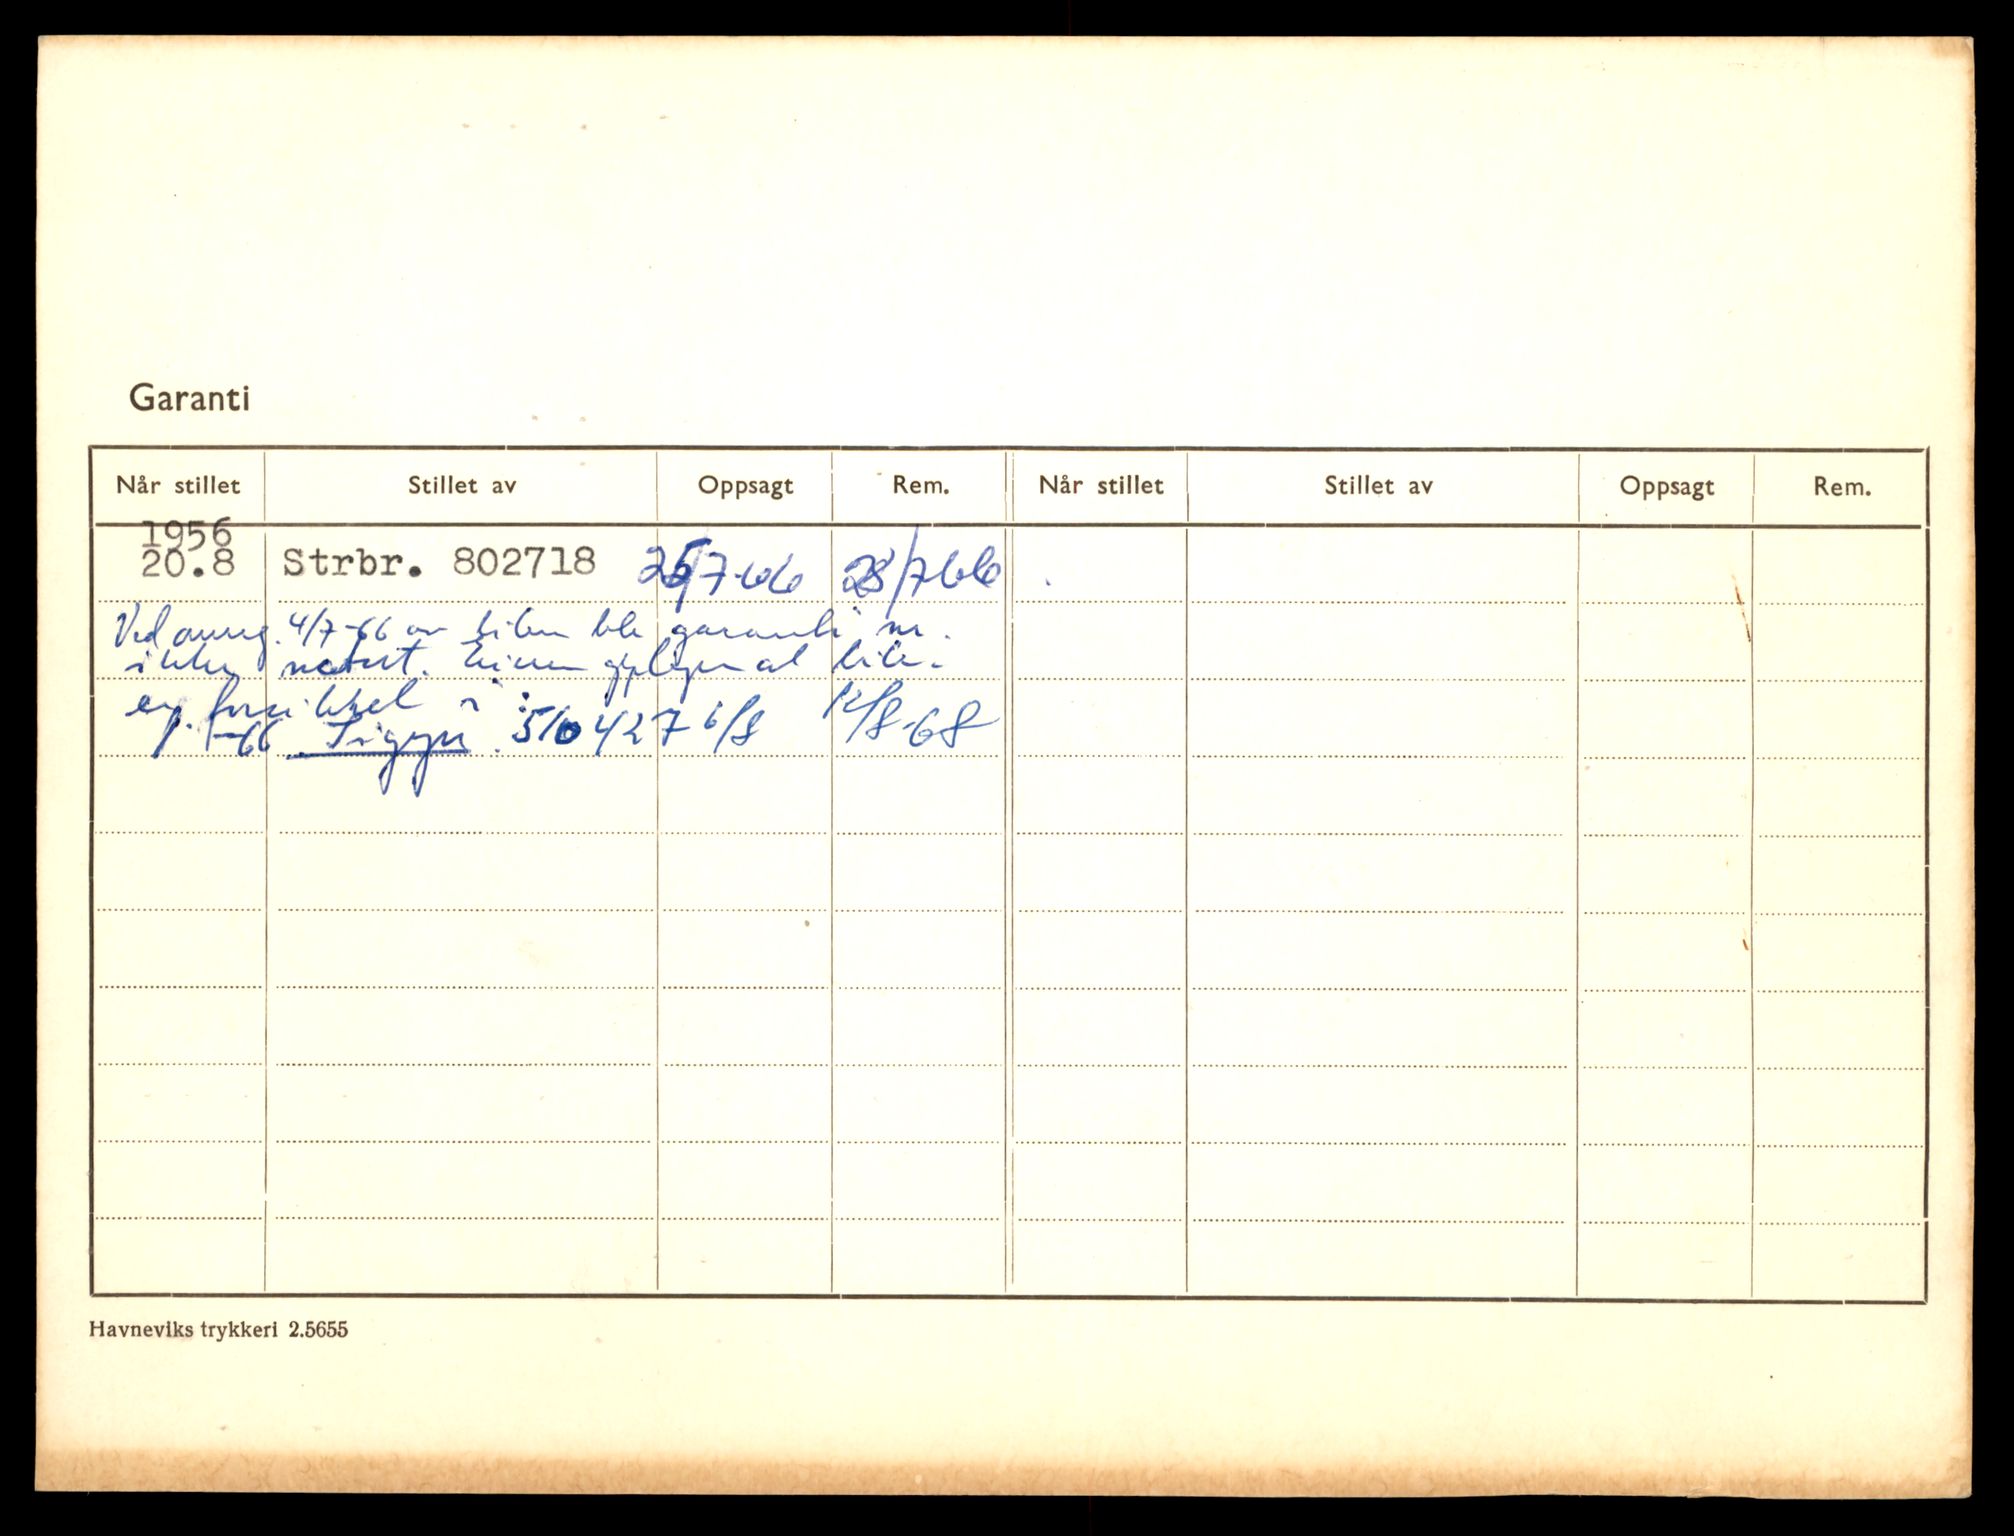 Garanti
Når stillet Stillet av Oppsagt Rem. Når stillet Stillet av Oppsagt Rem.
1956
20.8 Strbr. 802718 25/7-66 28/7 66
Ved omreg. 4/7-66 av bilen ble garanti nr.
ikke notert. Eieren opplyser at bilen
er forsikret i :
1. 7-66 Sigyn 510427 6/8 12/8-68
Havneviks trykkeri 2.5655